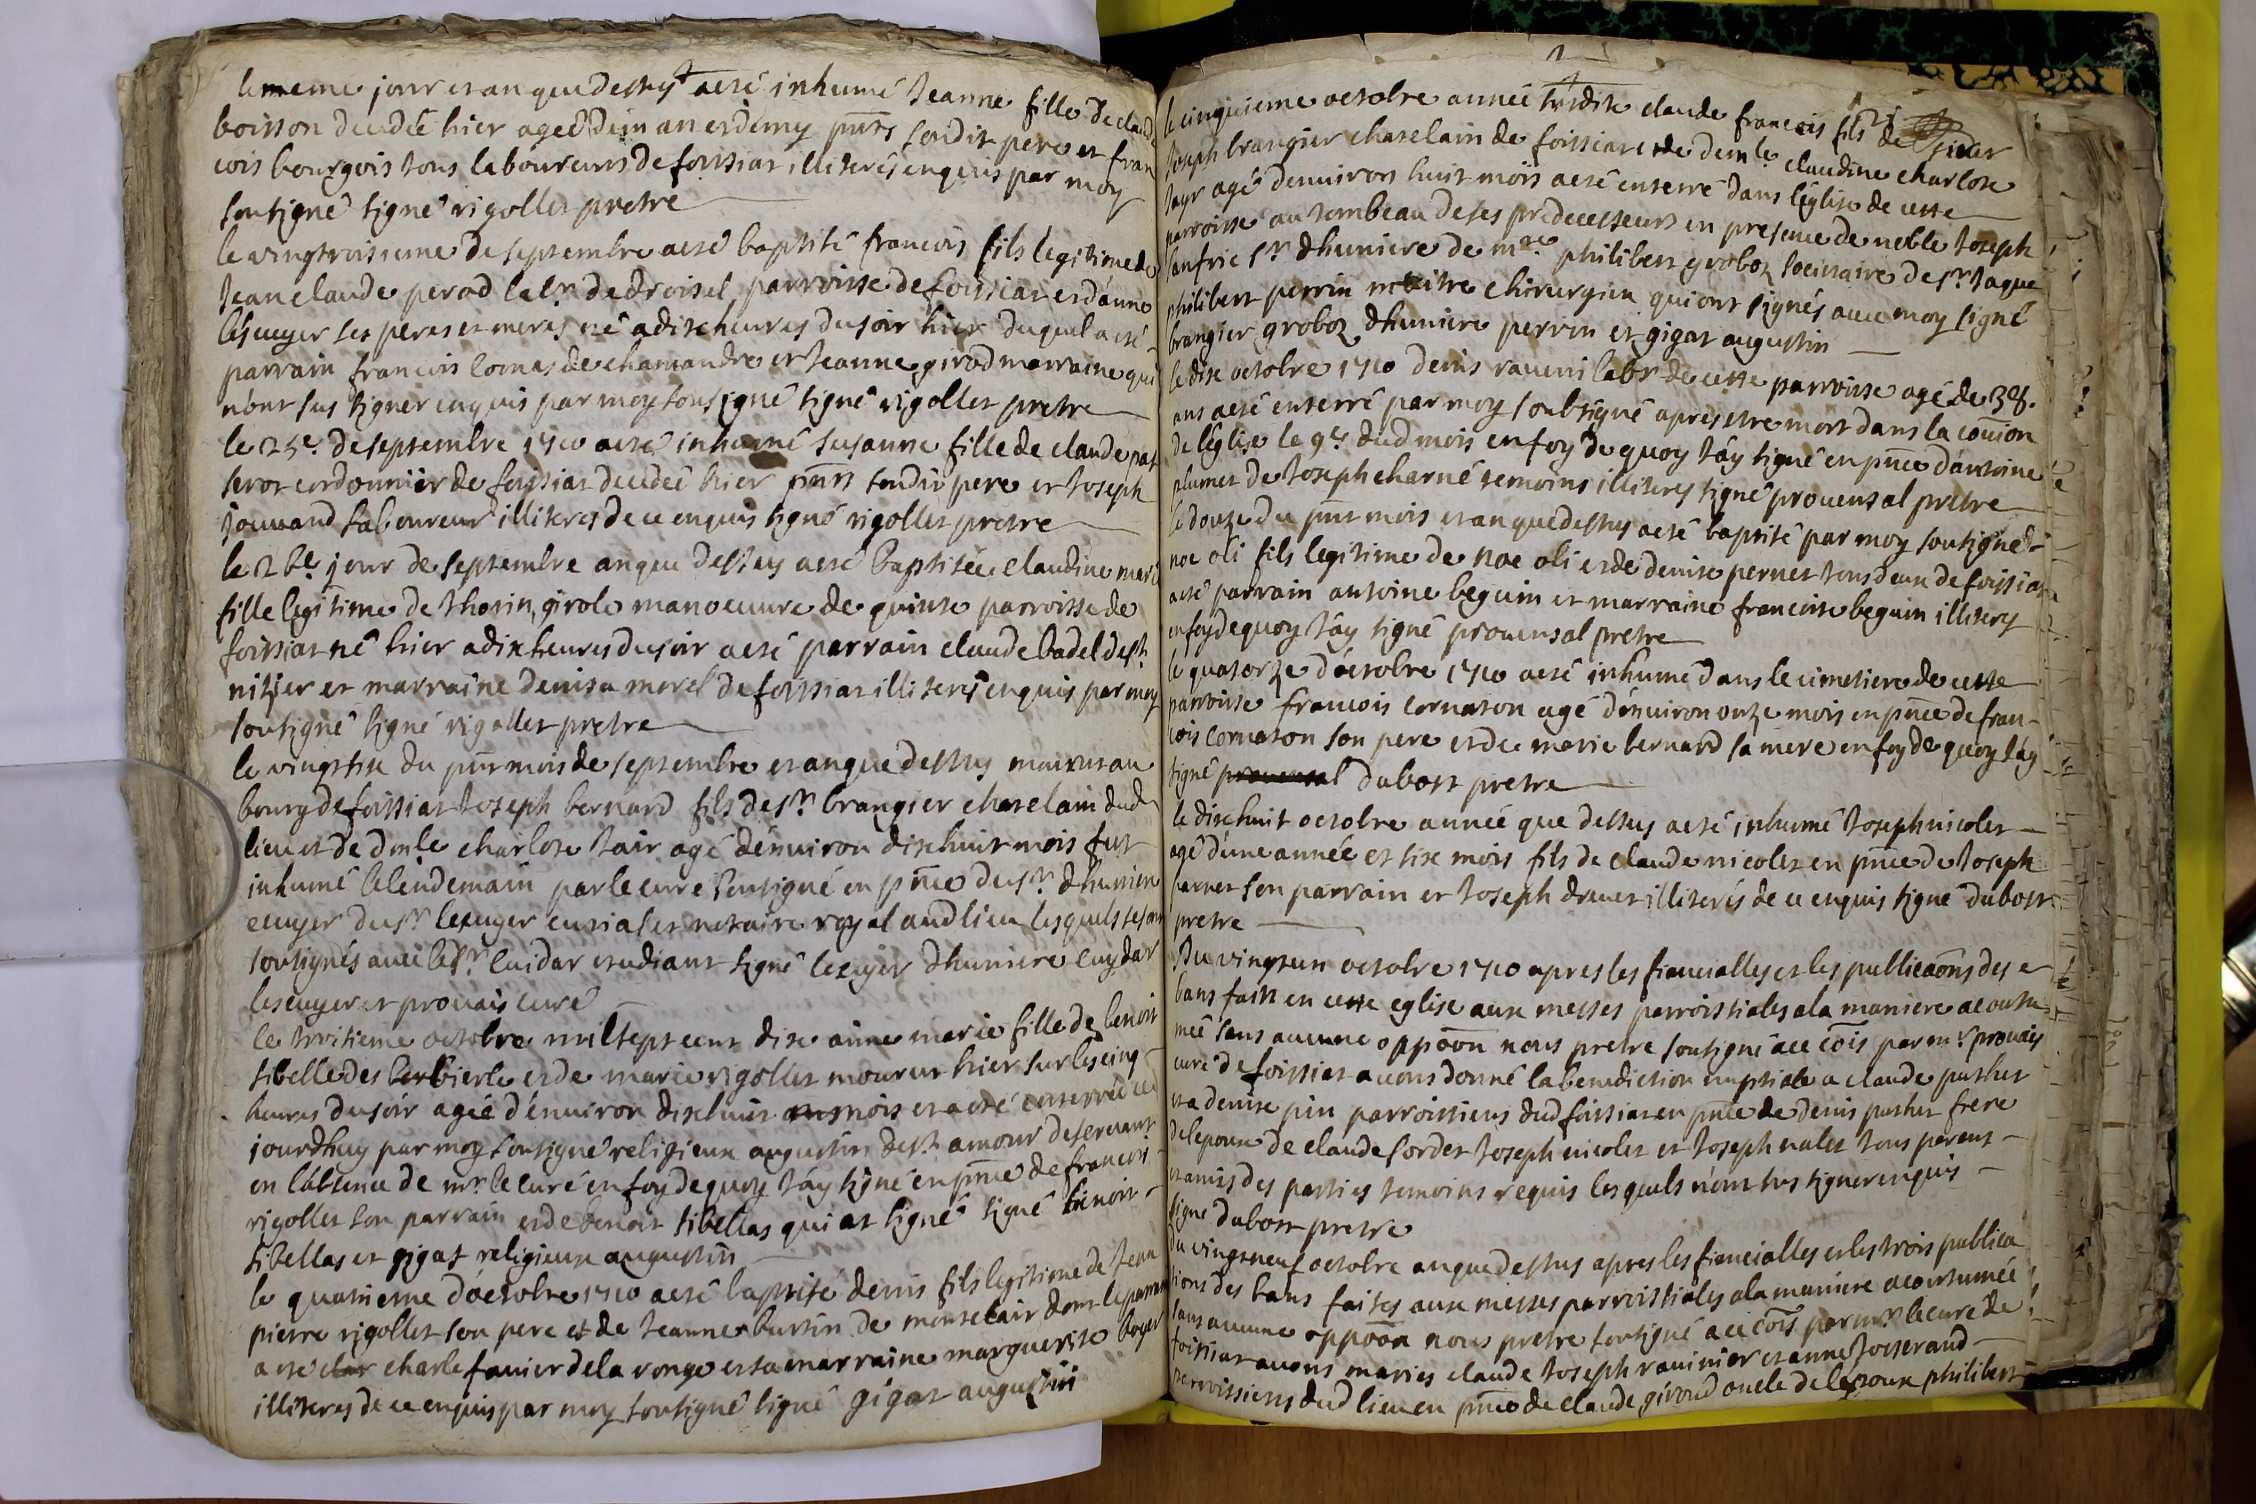 le meme jour et an que dessus a esté inhumé Jeanne fille de claude
boisson decedée hier ageé d'un an et demy pnts sondit pere et fran
cois bourgois tous laboureurs de foissiat illiterés enquis par moy
soussigné signé rigollet pretre
le vingtroisieme de septembre a esté baptisé francois fils legitime de
Jean claude perod labr. de droisel parroisse de foissiat et d'anne
lescuyer ses peres et meres né a dix heures du soir hier duquel a esté
parrain francois comas de chamandre et Jeanne girod marraine qui
n'ont sus signer enquis par moy sousigné signé rigollet pretre
le 25e. de septembre 1710 a esté inhumé Susanne fille de claude pas
serot cordonnier de foissiat decedée hier pnts sondit pere et Joseph
jouvand laboureur illiteres de ce enquis signé rigollet pretre
le 26e. jour de septembre an que dessus a esté baptisée claudine marie
fille legitime de thorin girole manoeuvre de quinte parroisse de
foissiat né hier a dix heures du soir a esté parrain claude badel de st.
nizier et marraine denisa morel de foissiat illiteres enquis par moy
soussigné signé rigollet pretre
le vingtsix du pnt mois de septembre et an que dessus mourut au
bourg de foissiat Joseph bernard fils de sr. brangier chatelain dud
lieu et de dmle charlote tair agé d'environ dixhuit mois fut
inhumé le lendemain par le curé soussigné en pnce du sr. dhumiere
ecuyer du sr. lescuyer curial et notaire royal aud lieu lesquels se sont
soussignés avec le sr. cuidar etudiant signé lescuyer dhumiere cuydar
lescuyer et provais curé
le troisieme octobre mil sept cent dix anne marie fille de benoit
sibelle des berbierle et de marie rigollet mourut hier sur les cinq
heures du soir ageé d'environ dixhuit mois et a esté enterrée ce
jourdhuy par moy soussigné religieux augustin de st. amour deservant
en l'absence de mr. le curé en foy de quoy j'ay signé en pnce de francois
rigollet son parrain et de benoit sibellas qui at signé signé benoit
sibellas et gigat religieux augustin
le quatrieme d'octobre 1710 a esté baptisé denis fils legitime de Jean
pierre rigollet son pere et de Jeanne burtin de montclair dont le parrain
a esté charle fanier de la ronge et sa marraine marguerite boyer
illiteres de ce enquis par moy soussigné signé gigat augustin
le cinquieme octobre année susdite claude francois fils de sieur
Joseph brangier chatelain de foissiat et de demle. claudine charlote
tayr agé d'environ huit mois a esté enterré dans l'église de cette
parroisse au tombeau de ses predecesseurs en presence de noble Joseph
sr. dhumiere de mre. philibert groboz secretaire de sr. Jaque
philibert perrin maitre chirurgien qui ont signés avec moy signé
brangier groboz dhumiere perrin et gigat augustin
le dix octobre 1710 denis ravini labr de cette parroisse agé de 38.
ans a esté enterré par moy soubsigné apres etre mort dans la couion
de l'église le 9e. dud mois en foy de quoy j'ay signé en pnce d'antoine
plumet de Joseph charné temoins illiteres signé provensal pretre
le douze du pnt mois et an que dessus a esté baptisé par moy soussigné
noe oli fils legitime de noe oli et de denise pernet tous deux de foissiat
a esté parrain antoine beguin et marraine francoise beguin illiteres
en foy de quoy j'ay signé provensal pretre
le quatorze d'octobre 1710 a esté inhumé dans le cimetiere de cette
parroisse francois cornaton agé d'environ onze mois en pnce de fran-
cois cornaton son pere et de marie bernard sa mere en foy de quoy j'ay
signé provensal dubost pretre
le dixhuit octobre année que dessus a esté inhumé Joseph nicolet
agé d'une année et six mois fils de claude nicolet en pnce de Joseph
parnet son parrain et Joseph drevet illiterés de ce enquis signé dubost
pretre
Du vingtun octobre 1710 apres les fiancialles et les publicaons des
bans faits en cette eglise aux messes parroissiales a la maniere acoutu
mée sans aucune oppoon nous pretre soussigné a ce cois par mr provais
curé de foissiat avons donné la benediction nuptiale a claude puthet
et a denise pin parroissiens dud foissiat en pnce de denis puthet frere
de lepoux de claude sordet Joseph nicolet et Joseph nalet tous parens
et amis des parties temoins requis lesquels n'ont sus signer enquis
signé dubost pretre
Du vingtneuf octobre an que dessus apres les fiancialles et les trois publica
tions des bans faites aux messes parroissiales a la maniere acoutumée
sans aucune oppoon nous pretre soussigné a ce cois par mr le curé de
foissiat avons mariés claude Joseph ravinier et anne Josserand
parroissiens dud lieu en pnce de claude giroud oncle de lepoux philibert